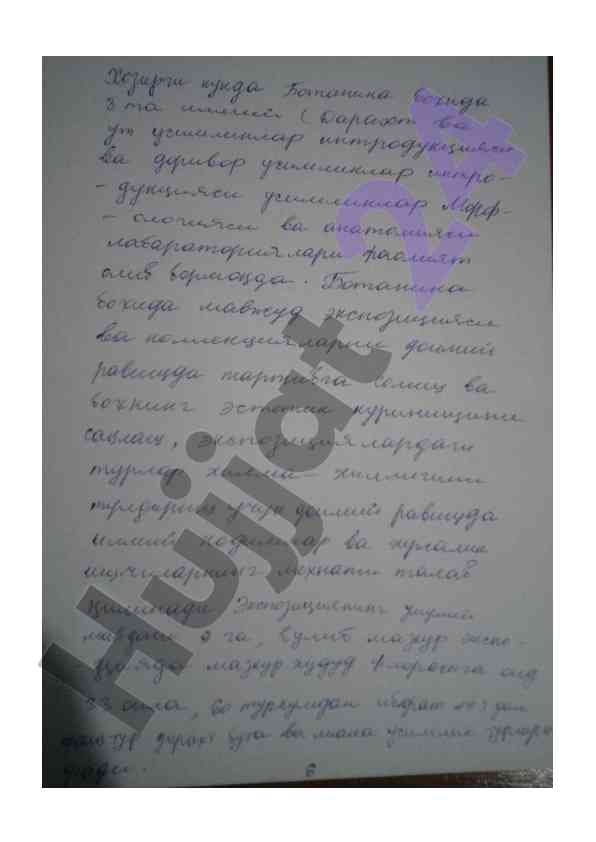 Хозирги кунда Ботаника бохида
3 та илмий (Дарахт ва
ут усимликлар интродукцияси
ва доривор усимликлар интро-
- дукцияси усимликлар Морф-
- ологияси ва анатомияси
лабараториялари фаолият
олиб бормоқда. Ботаника
бохида мавжуд экспозицияси
ва коллекцияларни доимий
равишда тартибга солиш ва
бохнинг эстетик куринишини
сақлаш, экспозициялардаги
турлар хилма-хиллигини
тулдириш учун доимий равишда
илмий ходимлар ва хужалик
ишчиларнинг мехнати талаб
қилинади Экспозициянинг умумий
майдони га, булиб мазкур экспо-
- зицияда мазкур худуд флорасига оид
33 оила, туркумдан иборат
тур дарахт бута ва лиана усимлик турлари
усади.
6
Hujjat 24